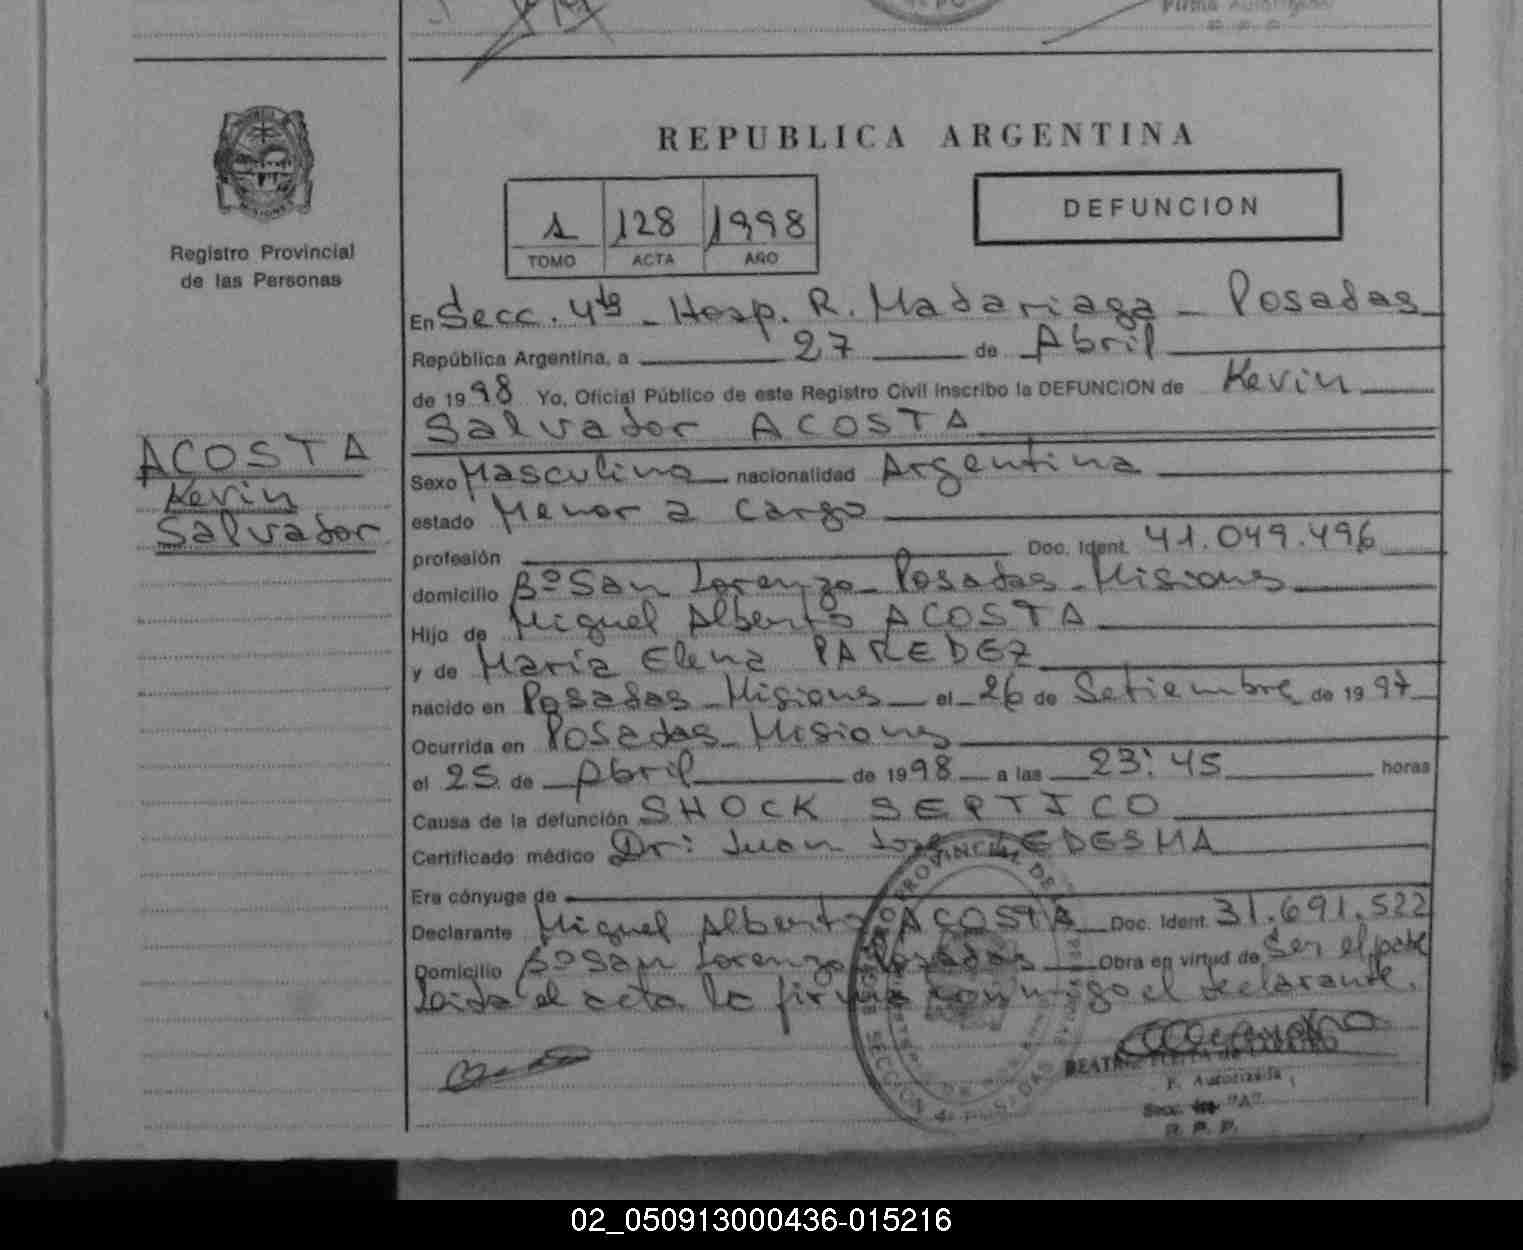 Firma Autorizada
R. P. P.
Registro Provincial
de las Personas
REPUBLICA ARGENTINA
DEFUNCION
1 128 1998
TOMO ACTA AÑO
En Secc. 4ta - Hosp. R. Madariaga - Posadas
República Argentina, a 27 de Abril
de 1998 Yo, Oficial Público de este Registro Civil inscribo la DEFUNCION de Kevin
Salvador ACOSTA
ACOSTA
Kevin
Salvador
Sexo Masculino nacionalidad Argentina
estado Menor a cargo
profesión Doc. Ident. 41.049.496
domicilio Bº San Lorenzo - Posadas - Misiones
Hijo de Miguel Alberto ACOSTA
y de María Elena PAREDEZ
nacido en Posadas - Misiones el 26 de Setiembre de 1997
Ocurrida en Posadas - Misiones
el 25 de Abril de 1998 a las 23:45 horas
Causa de la defunción SHOCK SEPTICO
Certificado médico Dr: Juan José LEDESMA
Era cónyuge de
Declarante Miguel Alberto ACOSTA Doc. Ident. 31.691.522
Domicilio Bº San Lorenzo Posadas Obra en virtud de Ser el padre
Leida el acta la firma conmigo el declarante.
PROVINCIAL DE
SECCION 4a POSADAS
BEATRIZ
F. Autorizada
Secc. "A"
R. P. P.
02_050913000436-015216